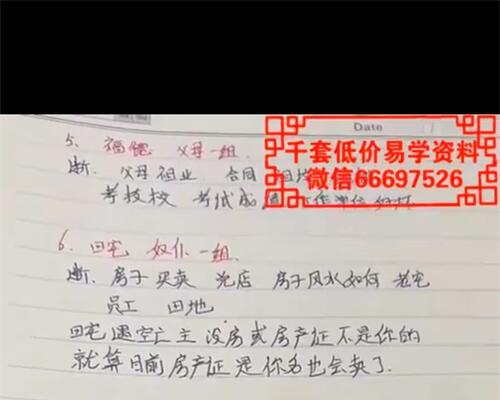 Date
5、福德 父母一组.
断. 父母 祖业、合同
考技校 考试成
千套低价易学资料
微信66697526
6、田宅 奴仆一组、
断. 房子买卖 兑店 房子风水如何 老宅
员工 田地
田宅遇空亡主没房或房产证不是你的
就算目前房产证是你名也会卖了.